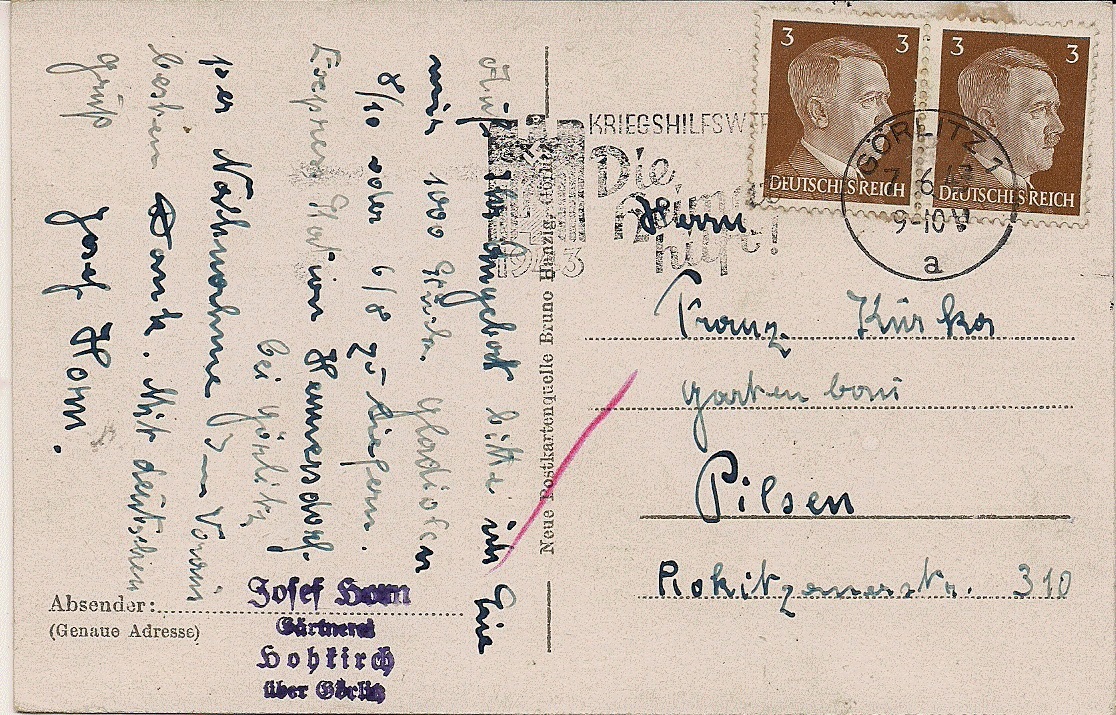 Auf Ihr Angebot bitte ich Sie
mir 1000 Stück Gladiolen
8/10 oder 6/8 zu liefern.
Express Station Hennersdorf.
bei Görlitz,
per Nachnahme Im Voraus
besten Dank. Mit deutschen
Gruß
Josef Horn.
Absender:
(Genaue Adresse)
Josef Horn
Gärtnerei
Hohkirch
über Görlitz
Neue Postkartenquelle Bruno Hanzig, Görlitz
KRIEGSHILFSWE
Die
Heimat
hilft!
1943
3 3
DEUTSCHES REICH
3 3
DEUTSCHES REICH
GÖRLITZ 1
9-10 V
a
Herrn
Franz Kürka
Gartenbau
Pilsen
Rokitzanerstr. 310